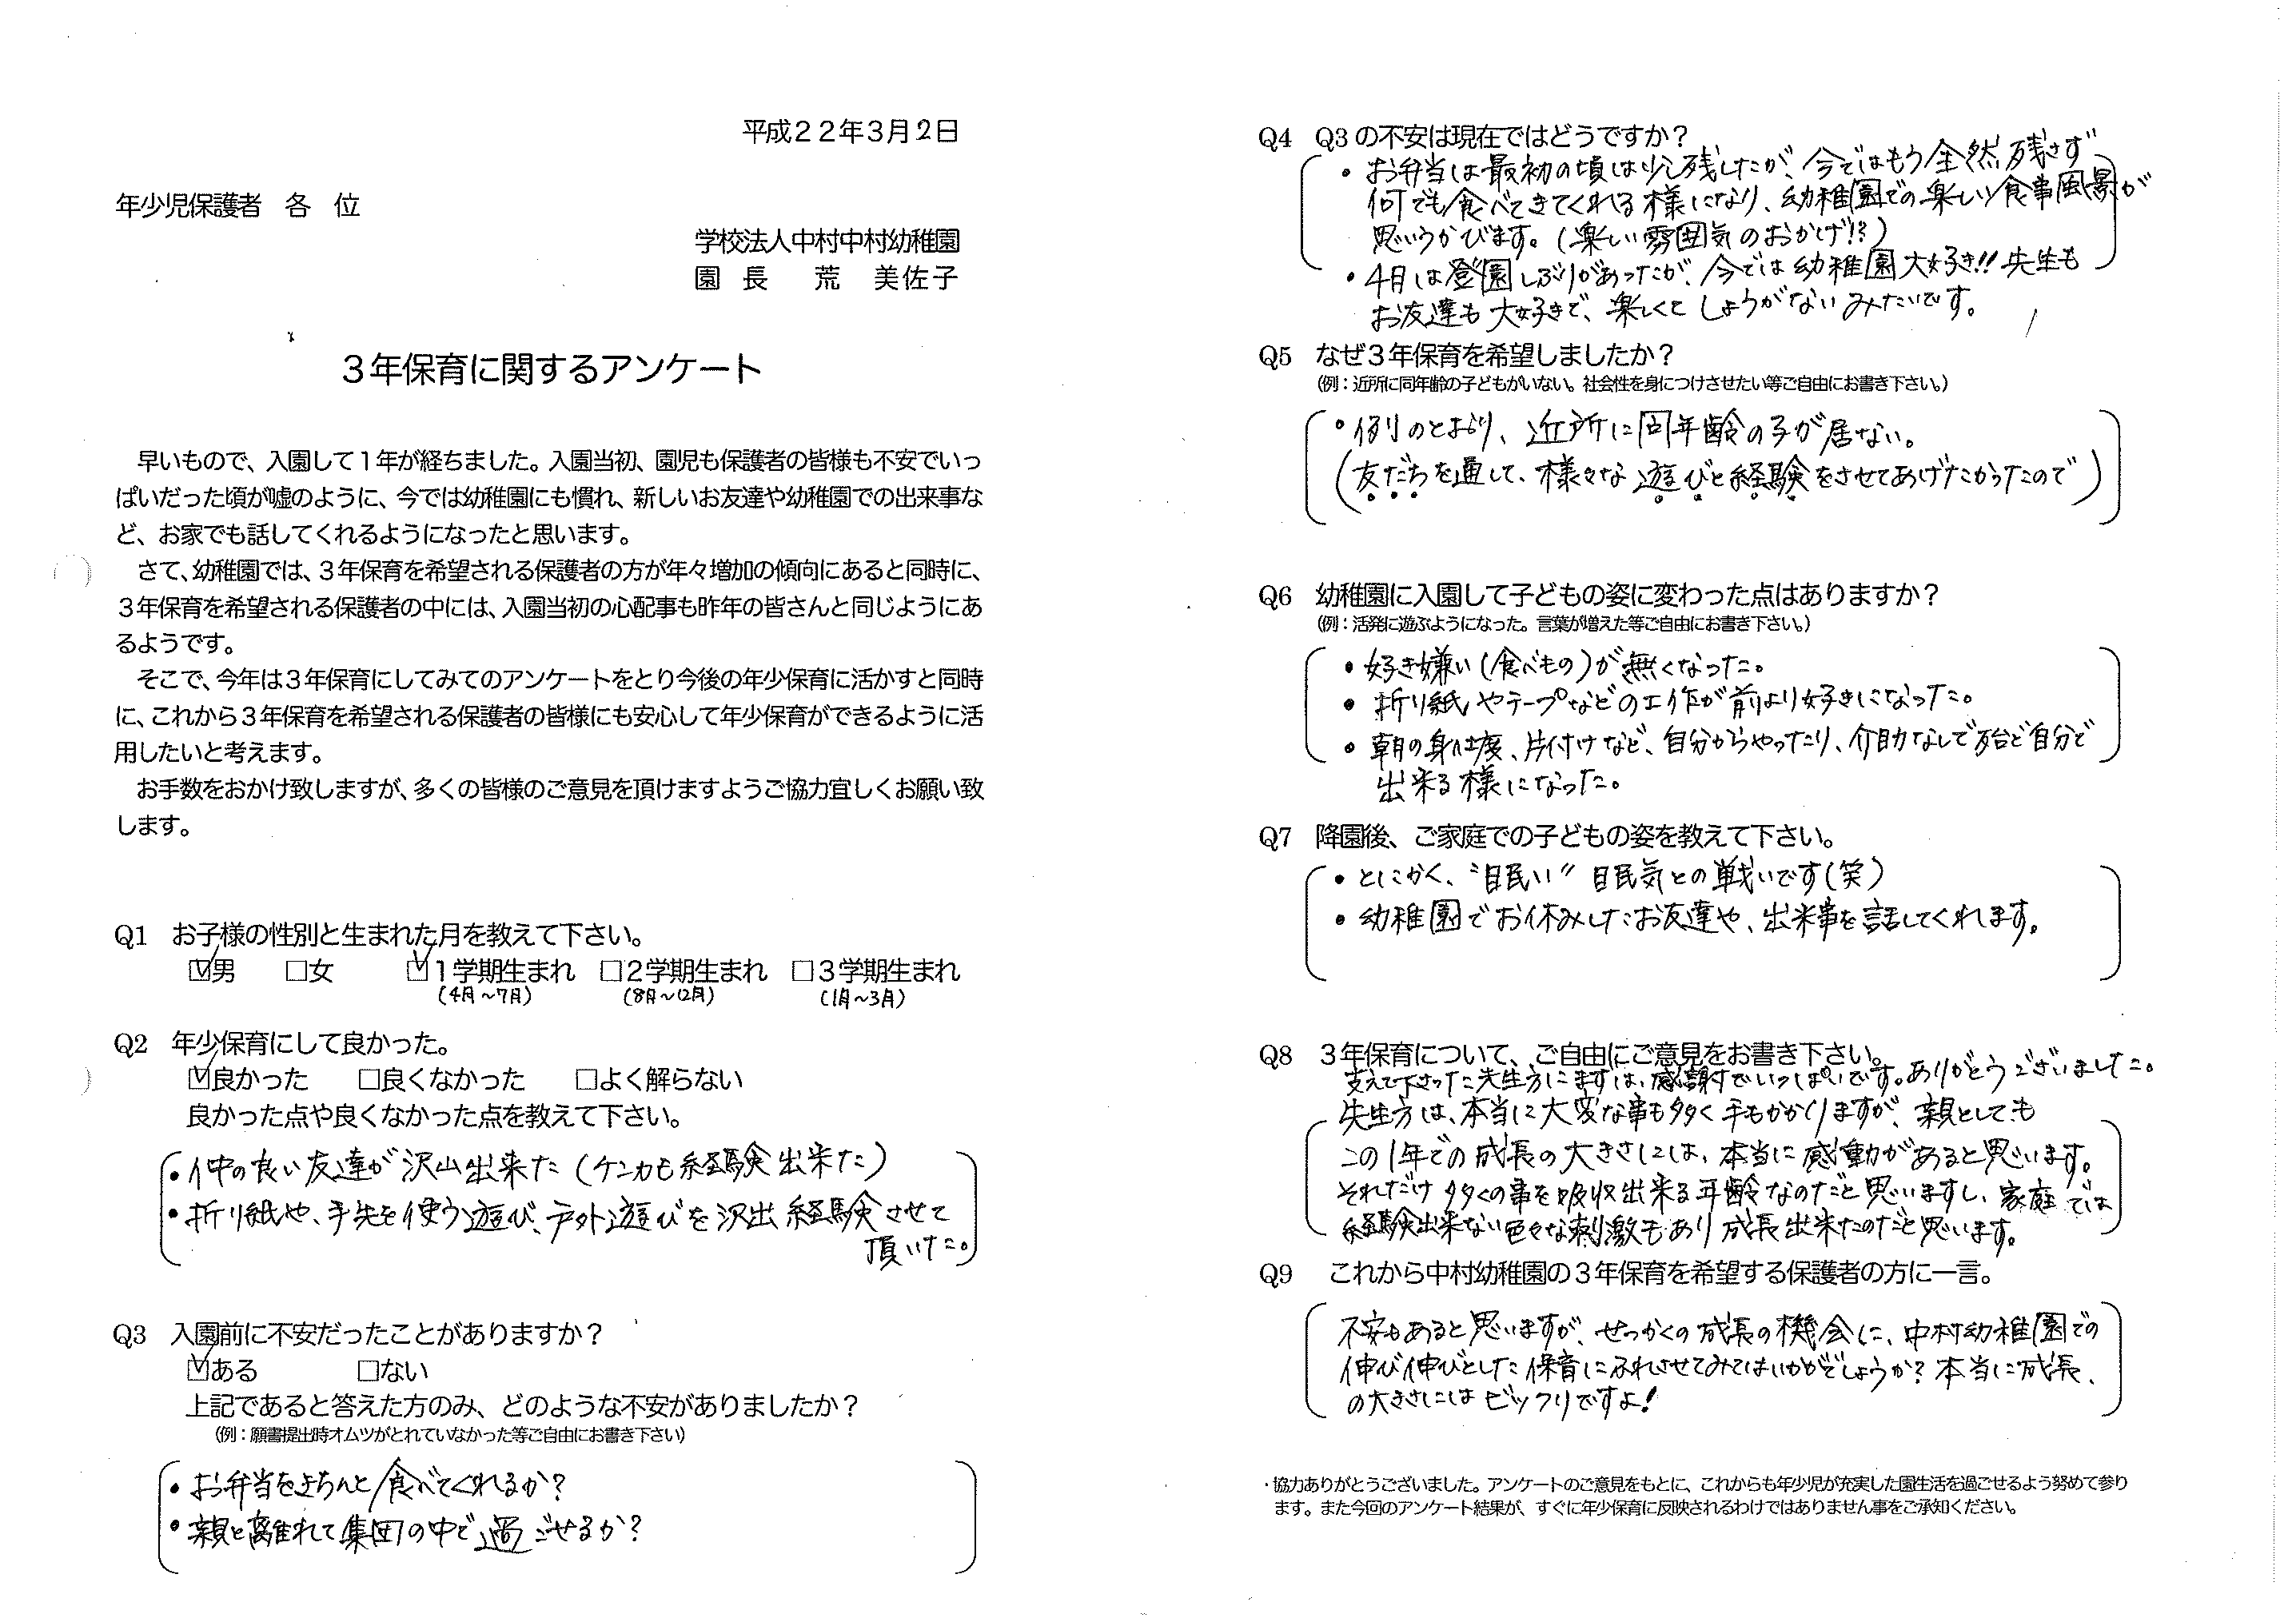 平成２２年３月２日
年少児保護者　各　位
学校法人中村中村幼稚園
園　長　　荒　美佐子
３年保育に関するアンケート
早いもので、入園して１年が経ちました。入園当初、園児も保護者の皆様も不安でいっ
ぱいだった頃が嘘のように、今では幼稚園にも慣れ、新しいお友達や幼稚園での出来事な
ど、お家でも話してくれるようになったと思います。
さて、幼稚園では、３年保育を希望される保護者の方が年々増加の傾向にあると同時に、
３年保育を希望される保護者の中には、入園当初の心配事も昨年の皆さんと同じようにあ
るようです。
そこで、今年は３年保育にしてみてのアンケートをとり今後の年少保育に活かすと同時
に、これから３年保育を希望される保護者の皆様にも安心して年少保育ができるように活
用したいと考えます。
お手数をおかけ致しますが、多くの皆様のご意見を頂けますようご協力宜しくお願い致
します。
Q1　お子様の性別と生まれた月を教えて下さい。
☑男　□女　☑１学期生まれ　□２学期生まれ　□３学期生まれ
(4月～7月)　(8月～12月)　(1月～3月)
Q2　年少保育にして良かった。
☑良かった　□良くなかった　□よく解らない
良かった点や良くなかった点を教えて下さい。
・仲の良い友達が沢山出来た（ケンカも経験出来た）
・折り紙や、手先を使う遊び、戸外遊びを沢山経験させて
頂いた。
Q3　入園前に不安だったことがありますか？
☑ある　□ない
上記であると答えた方のみ、どのような不安がありましたか？
（例：願書提出時オムツがとれていなかった等ご自由にお書き下さい）
・お弁当をきちんと食べてくれるか？
・親と離れて集団の中で過ごせるか？
Q4　Q3の不安は現在ではどうですか？
・お弁当は最初の頃は少し残したが、今ではもう全然残さず
何でも食べてきてくれる様になり、幼稚園での楽しい食事風景が
思いうかびます。（楽しい雰囲気のおかげ!?）
・4月は登園しぶりがあったが、今では幼稚園大好き!! 先生も
お友達も大好きで、楽しくてしょうがないみたいです。
Q5　なぜ３年保育を希望しましたか？
（例：近所に同年齢の子どもがいない。社会性を身につけさせたい等ご自由にお書き下さい。）
・例のとおり、近所に同年齢の子が居ない。
（友だちを通して、様々な遊びと経験をさせてあげたかったので）
Q6　幼稚園に入園して子どもの姿に変わった点はありますか？
（例：活発に遊ぶようになった。言葉が増えた等ご自由にお書き下さい。）
・好き嫌い（食べもの）が無くなった。
・折り紙やテープなどの工作が前より好きになった。
・朝の身仕度、片付けなど、自分からやったり、介助なしで殆ど自分で
出来る様になった。
Q7　降園後、ご家庭での子どもの姿を教えて下さい。
・とにかく、“眠い” 眠気との戦いです（笑）
・幼稚園でお休みしたお友達や、出来事を話してくれます。
Q8　３年保育について、ご自由にご意見をお書き下さい。
支えて下さった先生方にまずは、感謝でいっぱいです。ありがとうございました。
先生方は、本当に大変な事も多く手もかかりますが、親としても
この1年での成長の大きさには、本当に感動があると思います。
それだけ多くの事を吸収出来る年齢なのだと思いますし、家庭では
経験出来ない色々な刺激もあり成長出来たのだと思います。
Q9　これから中村幼稚園の３年保育を希望する保護者の方に一言。
不安もあると思いますが、せっかくの成長の機会に、中村幼稚園での
伸び伸びとした保育にふれさせてみてはいかがでしょうか？本当に成長
の大きさにはビックリですよ！
・協力ありがとうございました。アンケートのご意見をもとに、これからも年少児が充実した園生活を過ごせるよう努めて参り
ます。また今回のアンケート結果が、すぐに年少保育に反映されるわけではありません事をご承知ください。